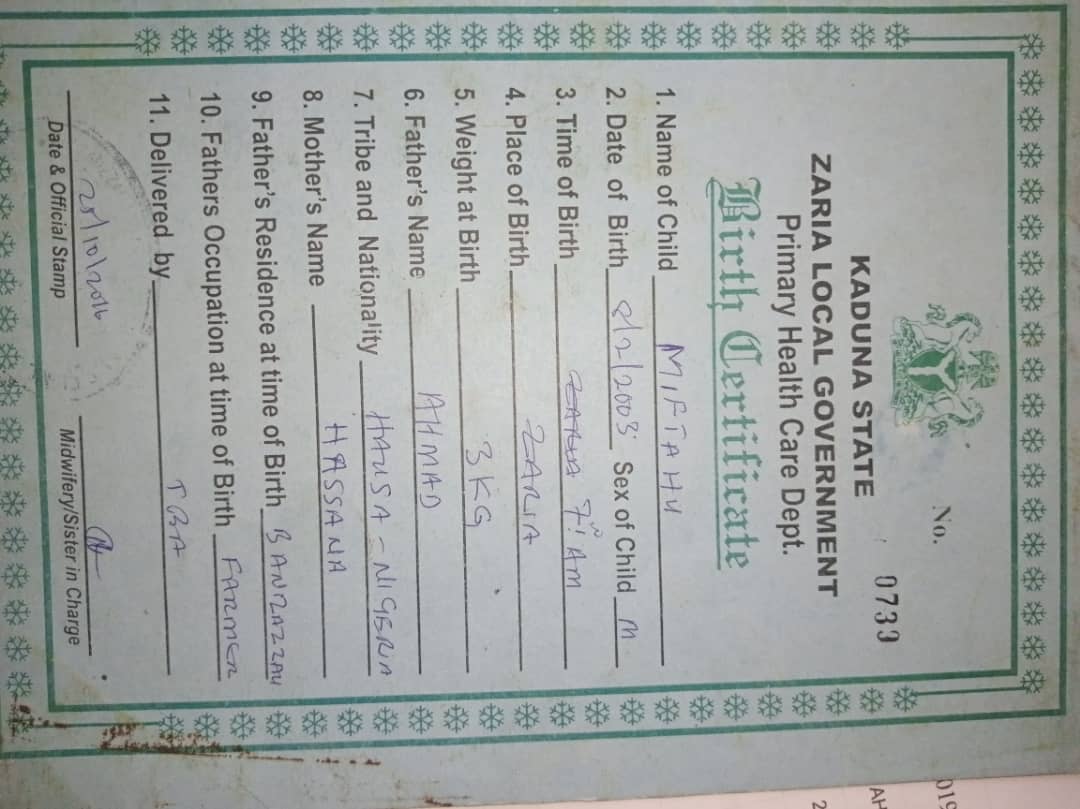 No. 0733
KADUNA STATE
ZARIA LOCAL GOVERNMENT
Primary Health Care Dept.
Birth Certificate
1. Name of Child MIFTAHU
2. Date of Birth 8/2/2003 Sex of Child M
3. Time of Birth 7:00 AM
4. Place of Birth ZARIA
5. Weight at Birth 3KG
6. Father's Name AHMAD
7. Tribe and Nationality HAUSA - NIGERIA
8. Mother's Name HASSANA
9. Father's Residence at time of Birth BANZAZZAU
10. Fathers Occupation at time of Birth FARMER
11. Delivered by TBA
20/10/2016
Date & Official Stamp Midwifery/Sister in Charge
019
AH
2